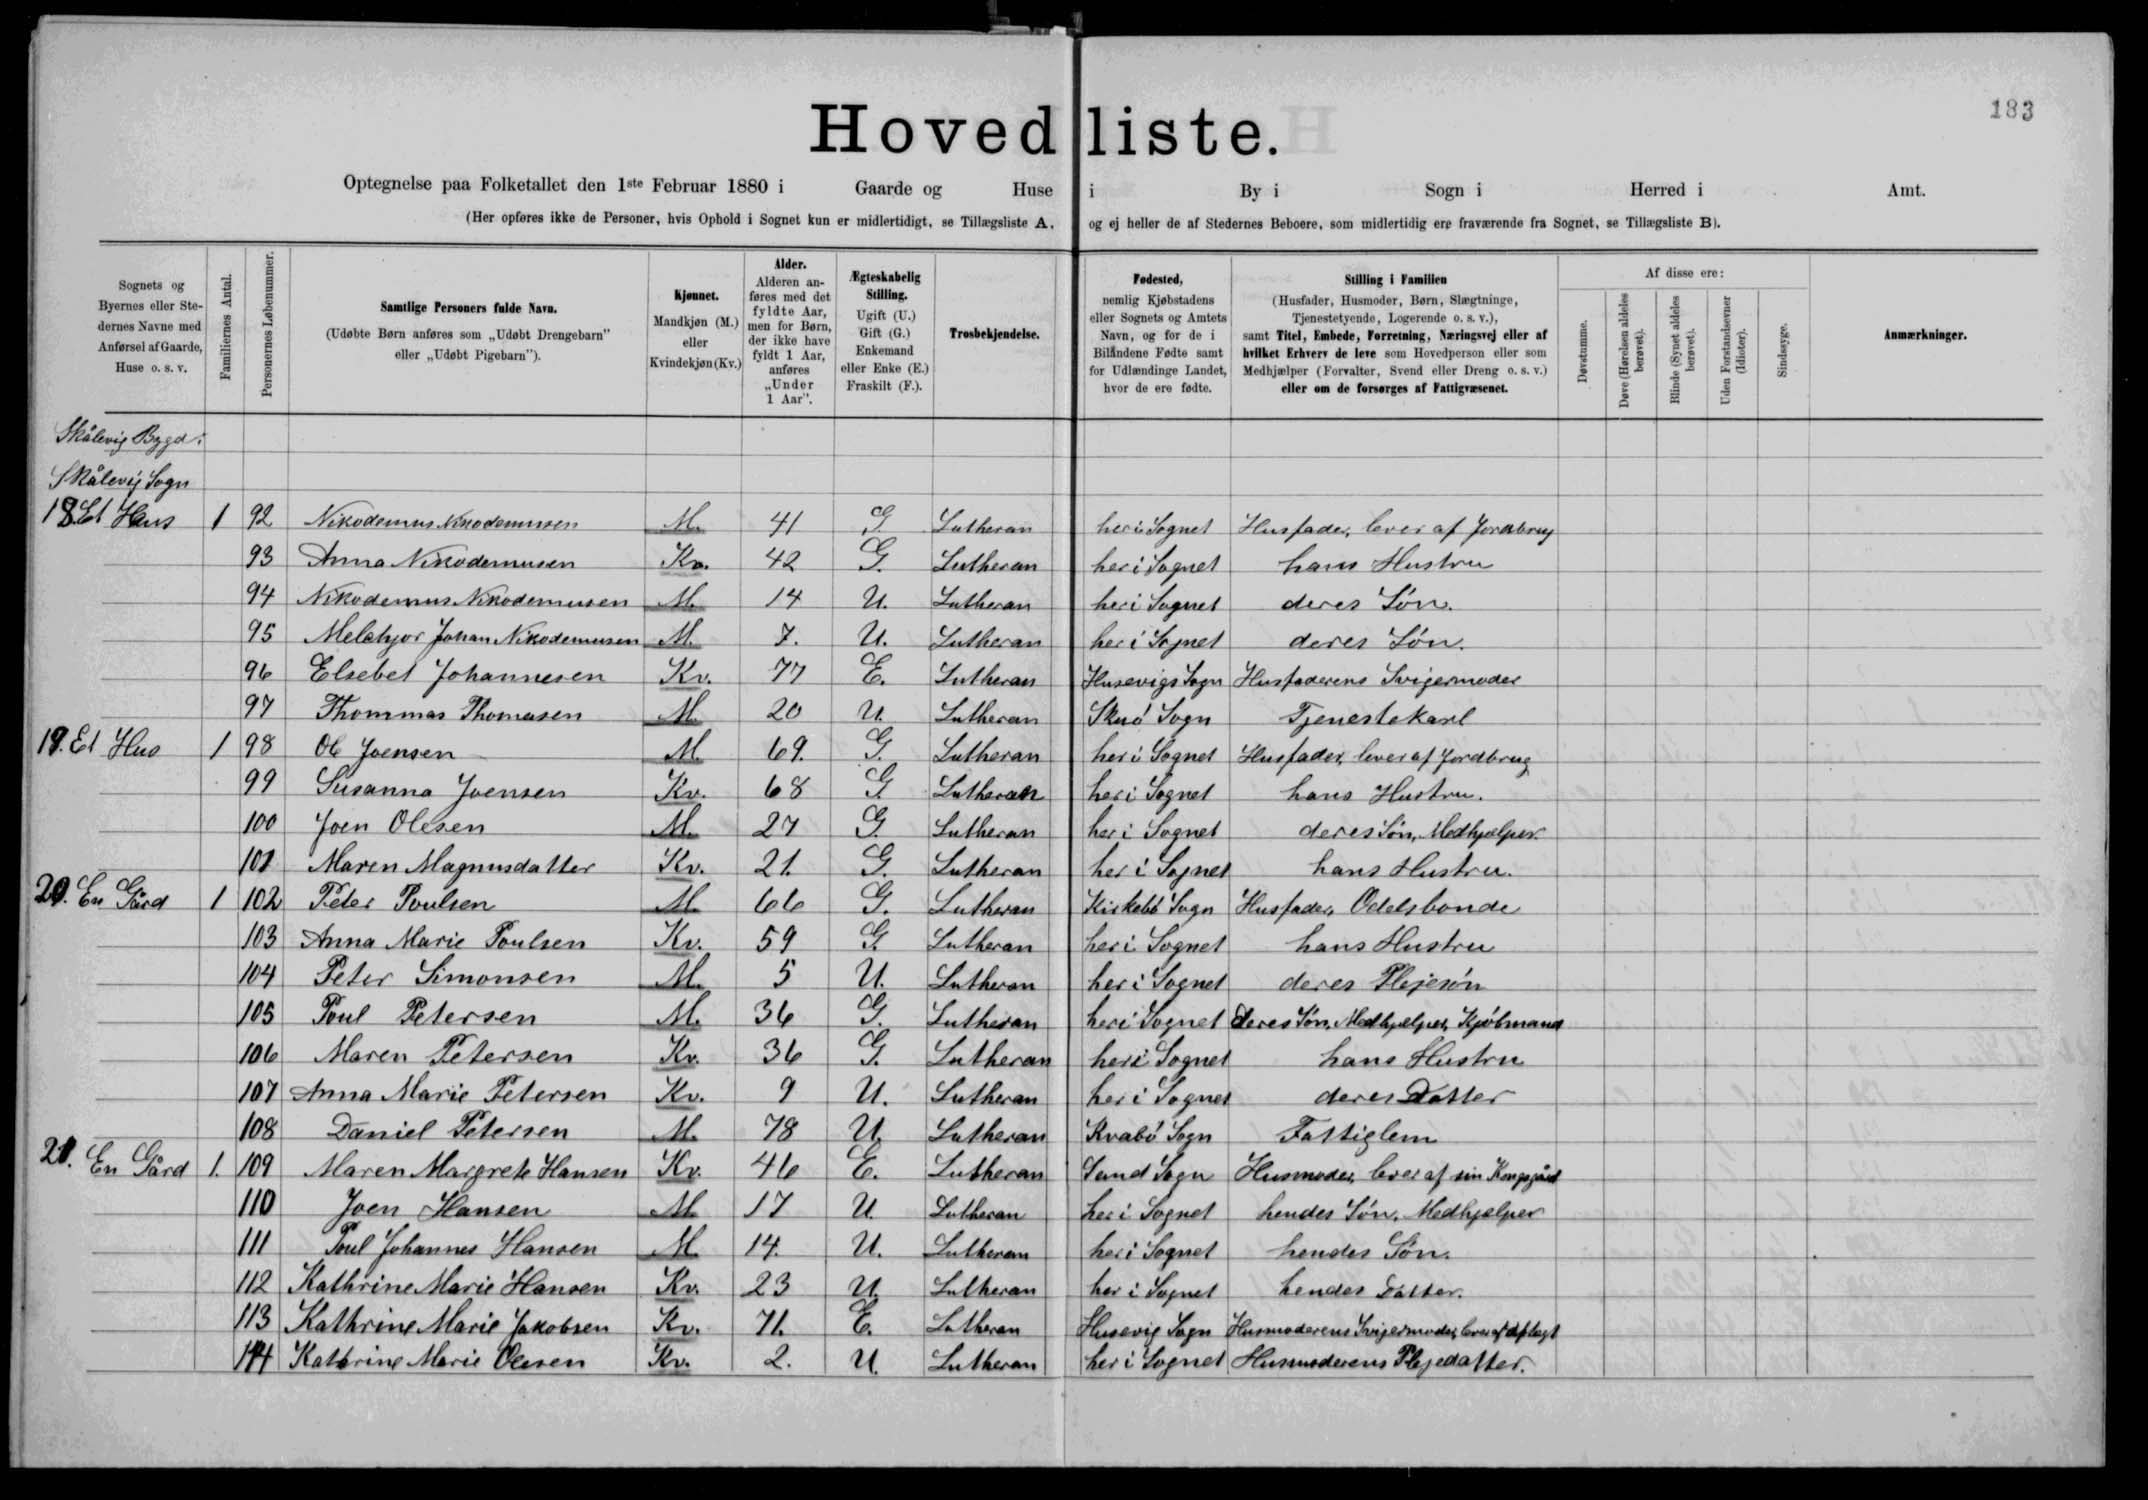 183
Hovedliste.
Optegnelse paa Folketallet den 1ste Februar 1880 i Gaarde og Huse i By i Sogn i Herred i Amt.
(Her opføres ikke de Personer, hvis Ophold i Sognet kun er midlertidigt, se Tillægsliste A, og ej heller de af Stedernes Beboere, som midlertidig ere fraværende fra Sognet, se Tillægsliste B).
Sognets og Byernes eller Stedernes Navne med Anførsel af Gaarde, Huse o. s. v.
Familiernes Antal.
Personernes Løbenummer.
Samtlige Personers fulde Navn.
(Udøbte Børn anføres som „Udøbt Drengebarn" eller „Udøbt Pigebarn").
Kjønnet.
Mandkjøn (M.) eller Kvindekjøn (Kv.)
Alder.
Alderen anføres med det fyldte Aar, men for Børn, der ikke have fyldt 1 Aar, anføres „Under 1 Aar".
Ægteskabelig Stilling.
Ugift (U.) Gift (G.) Enkemand eller Enke (E.) Fraskilt (F.).
Trosbekjendelse.
Fødested,
nemlig Kjøbstadens eller Sognets og Amtets Navn, og for de i Bilandene Fødte samt for Udlændinge Landet, hvor de ere fødte.
Stilling i Familien
(Husfader, Husmoder, Børn, Slægtninge, Tjenestetyende, Logerende o. s. v.),
samt Titel, Embede, Forretning, Næringsvej eller af hvilket Erhverv de leve som Hovedperson eller som Medhjælper (Forvalter, Svend eller Dreng o. s. v.) eller om de forsørges af Fattigvæsenet.
Af disse ere:
Døvstumme.
Døve (Hørelsen aldeles berøvet).
Blinde (Synet aldeles berøvet).
Uden Forstandsevner (Idioter).
Sindssyge.
Anmærkninger.
Skålevig Bygd:
Skålevig Sogn
18. Et Hus 1 92 Nikodemus Nikodemusen M. 41 G. Lutheran her i Sognet Husfader, lever af Jordbrug
93 Anna Nikodemusen Kv. 42 G. Lutheran her i Sognet hans Hustru
94 Nikodemus Nikodemusen M. 14 U. Lutheran her i Sognet deres Søn.
95 Melchjor Johan Nikodemusen M. 7. U. Lutheran her i Sognet deres Søn.
96 Elsebet Johannesen Kv. 77 E. Lutheran Husevigs Sogn Husfaderens Svigermoder
97 Thommas Thomasen M. 20 U. Lutheran Skuø Sogn Tjenestekarl
19. Et Hus 1 98 Ole Joensen M. 69. G. Lutheran her i Sognet Husfader, lever af Jordbrug
99 Susanna Joensen Kv. 68 G. Lutheran her i Sognet hans Hustru.
100 Joen Olesen M. 27 G. Lutheran her i Sognet deres Søn, Medhjælper.
101 Maren Magnusdatter Kv. 21. G. Lutheran her i Sognet hans Hustru.
20. En Gård 1 102 Peter Poulsen M. 66 G. Lutheran Kirkebø Sogn Husfader, Odelsbonde
103 Anna Marie Poulsen Kv. 59 G. Lutheran her i Sognet hans Hustru
104 Peter Simonsen M. 5 U. Lutheran her i Sognet deres Plejesøn
105 Poul Petersen M. 36 G. Lutheran her i Sognet deres Søn, Medhjælper, Kjøbmand
106 Maren Petersen Kv. 36 G. Lutheran her i Sognet hans Hustru
107 Anna Marie Petersen Kv. 9 U. Lutheran her i Sognet deres Datter
108 Daniel Petersen M. 78 U. Lutheran Kvabø Sogn Fattiglem
21. En Gård 1. 109 Maren Margrete Hansen Kv. 46 E. Lutheran Sand Sogn Husmoder, lever af sin Kongsgård
110 Joen Hansen M. 17 U. Lutheran her i Sognet hendes Søn, Medhjælper
111 Poul Johannes Hansen M. 14. U. Lutheran her i Sognet hendes Søn.
112 Kathrine Marie Hansen Kv. 23 U. Lutheran her i Sognet hendes Datter.
113 Kathrine Marie Jakobsen Kv. 71. E. Lutheran Husevig Sogn Husmoderens Svigermoder, lever af aftægt
114 Kathrine Marie Olesen Kv. 2. U. Lutheran her i Sognet Husmoderens Plejedatter.